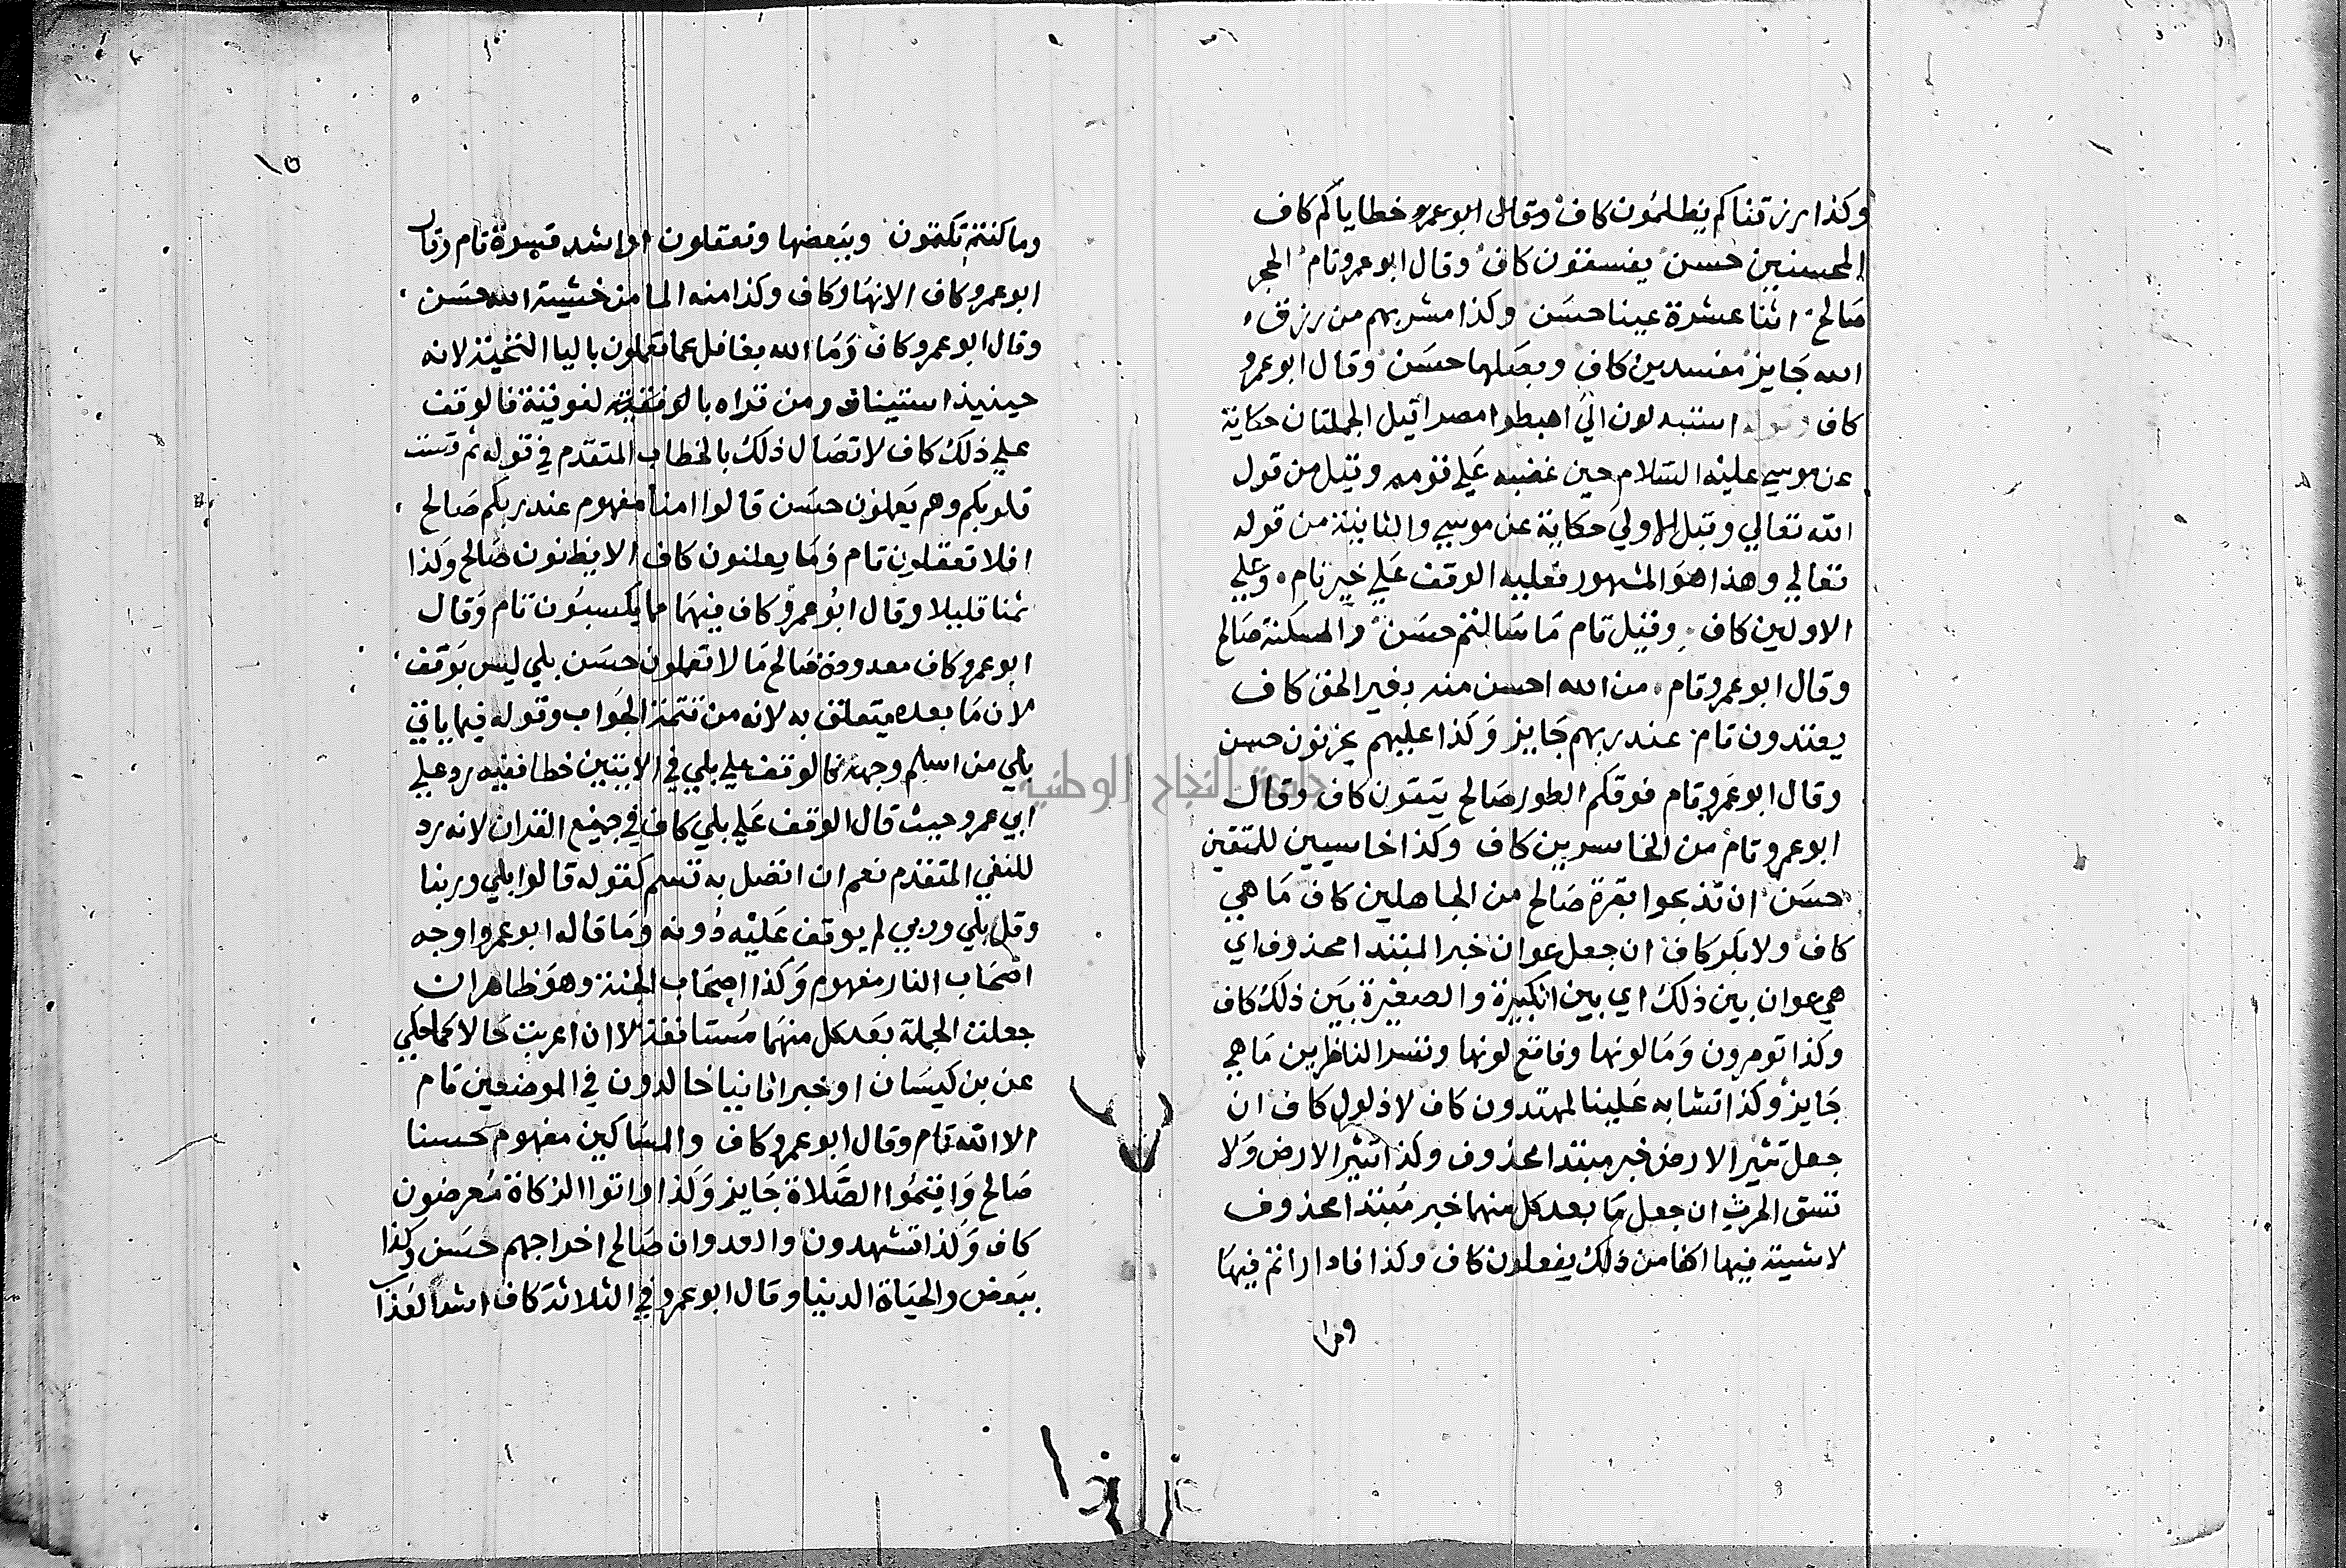 وكذا رزقناكم يظلمون كاف وقال ابو عمرو خطاياكم كاف
المحسنين حسن يفسقون كاف وقال ابو عمرو تام الحجر
صَالح اثنتا عشرة عينا حسَن وكذا مشربهم من رزق
الله جَايز مفسدين كاف وبصَلها حسَن وقال ابو عمرو
كاف وقوله استبدلون الي اهبطوا مصرا قيل الجملتان حكاية
عن موسي عليه السّلام حين غضبه عَلي قومه وقيل من قول
الله تعالي وقيل الاولي حكاية عن موسي والثانية من قوله
تعالي وهذا هوَ المشهور فعليه الوقف عَلي خير تام وعَلي
الاولين كاف وقيل تام مَا سَالتم حسَن والمسكنة صَالح
وقال ابو عمرو تام من الله احسن منه بغير الحق كاف
يعتدون تام عند ربهم جَايز وَكذا عليهم يحزنون حسن
وقال ابو عَمرو تام فوقكم الطور صَالح يتقون كاف وقال
ابو عمرو تام من الخاسرين كاف وكذا خاسيين للمتقين
حسَن ان تذبحوا بقرة صَالح من الجاهلين كاف مَا هي
كاف ولا بكر كاف ان جعل عوان خبر المبتدا محذوف اي
هي عوان بين ذلك اي بين الكبيرة والصغيرة بَين ذلك كاف
وكذا تومرون وَمَا لونها وفاقع لونها وتسر الناظرين مَا هي
جَايز وكذا تشابه عَلينا لمهتدون كاف لا ذلول كاف ان
جعل تثير الارض خبر مبتدا محذوف وكذا تثير الارض وَلا
تسقي الحرث ان جعل مَا بعد كل منهما خبر مُبتدا محذوف
لا شية فيها اكفا من ذلك يفعلون كاف وكذا فادارأتم فيهَا
وما
١٥
وما كنتم تكتمون وببعضها وتعقلون او اشد قسوة تام وقال
ابو عمرو كاف الانهَار كاف وكذا منه الما من خشية الله حسَن
وقال ابو عمرو كاف وَمَا الله بغافل عما تعملون باليا التحتية لانه
حينيذ استيناف ومن قراه بالفوقية فالوقف
علي ذلك كاف لاتصَال ذلك بالخطاب المتقدم في قوله ثم قست
قلوبكم وهم يَعلمون حسَن قالوا امنا مفهوم عند ربكم صَالح
افلا تعقلون تام وَمَا يعلنون كاف الا يظنون صَالح وَكذا
ثمنا قليلا وقال ابُو عمرو كاف فيهمَا مما يكسبُون تام وَقال
ابو عمرو كاف معدودة صَالح مَا لا تعلمون حسَن بلي ليس بوَقف
لان مَا بعده متعلق به لانه من تتمة الجوَاب وقوله فيما ياتي
بلي من اسلم وجهه فالوقف علي بلي في الايتين خطا ففيه رد علي
ابي عمرو حيث قال الوقف عَلي بلي كاف في جميع القران لانه رد
للنفي المتقدم نعم ان اتصل به قسم كقوله قالوا بلي وربنا
وقل بلي وربي لم يوقف عَليْه دُونه وَمَا قاله ابو عمرو اوجه
اصحَاب النار مفهوم وَكذا اصحَاب الجنة وهوَ ظاهر ان
جعلت الجملة بَعد كل منهمَا مُستانفة لا ان اعربت حَالا كما حكي
عن بن كيسَان او خبرا ثانيا خالدون في الموضعين تام
الا الله تام وقال ابو عمرو كاف والمسَاكين مفهوم حسنا
صَالح وَاقيمُوا الصَّلاة جَايز وَكذا واتوا الزكاة مُعرضون
كاف وَكذا تشهدون والعدوان صَالح اخراجهم حسَن وكذا
ببَعض والحيَاة الدنيا وقال ابو عمرو في الثلاثة كاف اشد العَذاب
جامعة النجاح الوطنية